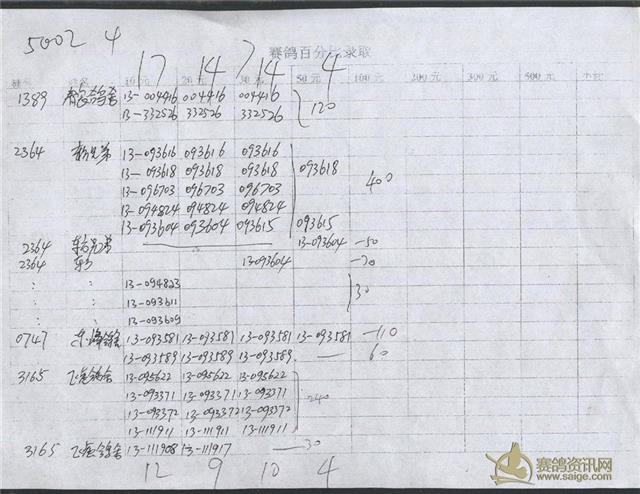 5002 4
17 14 14 4
赛鸽百分比录取
棚号 姓名 10元 20元 30元 50元 100元 200元 300元 500元 小计
1389 鸽舍 13-004416 004416 004416
13-332526 332526 332526 120
2364 兄弟 13-093616 093616 093616
13-093618 093618 093618 093618
13-096703 096703 096703 400
13-094824 094824 094824
13-093604 093604 093615 093615
2364 兄弟 13-093604 -50
2364 13-093604
" " 13-094823
" " 13-093611 30
13-093609
0747 13-093581 13-093581 13-093581 13-093581 -110
13-093589 13-093589 13-093589 — 60
3165 飞虎鸽舍 13-095622 13-095622 13-095622
13-093371 13-093371 13-093371 240
13-093372 13-093372 13-093372
13-111911 13-111911 13-111911
3165 飞虎鸽舍 13-111908 13-111917 — 30
12 9 10 4
赛鸽资讯网
www.saige.com